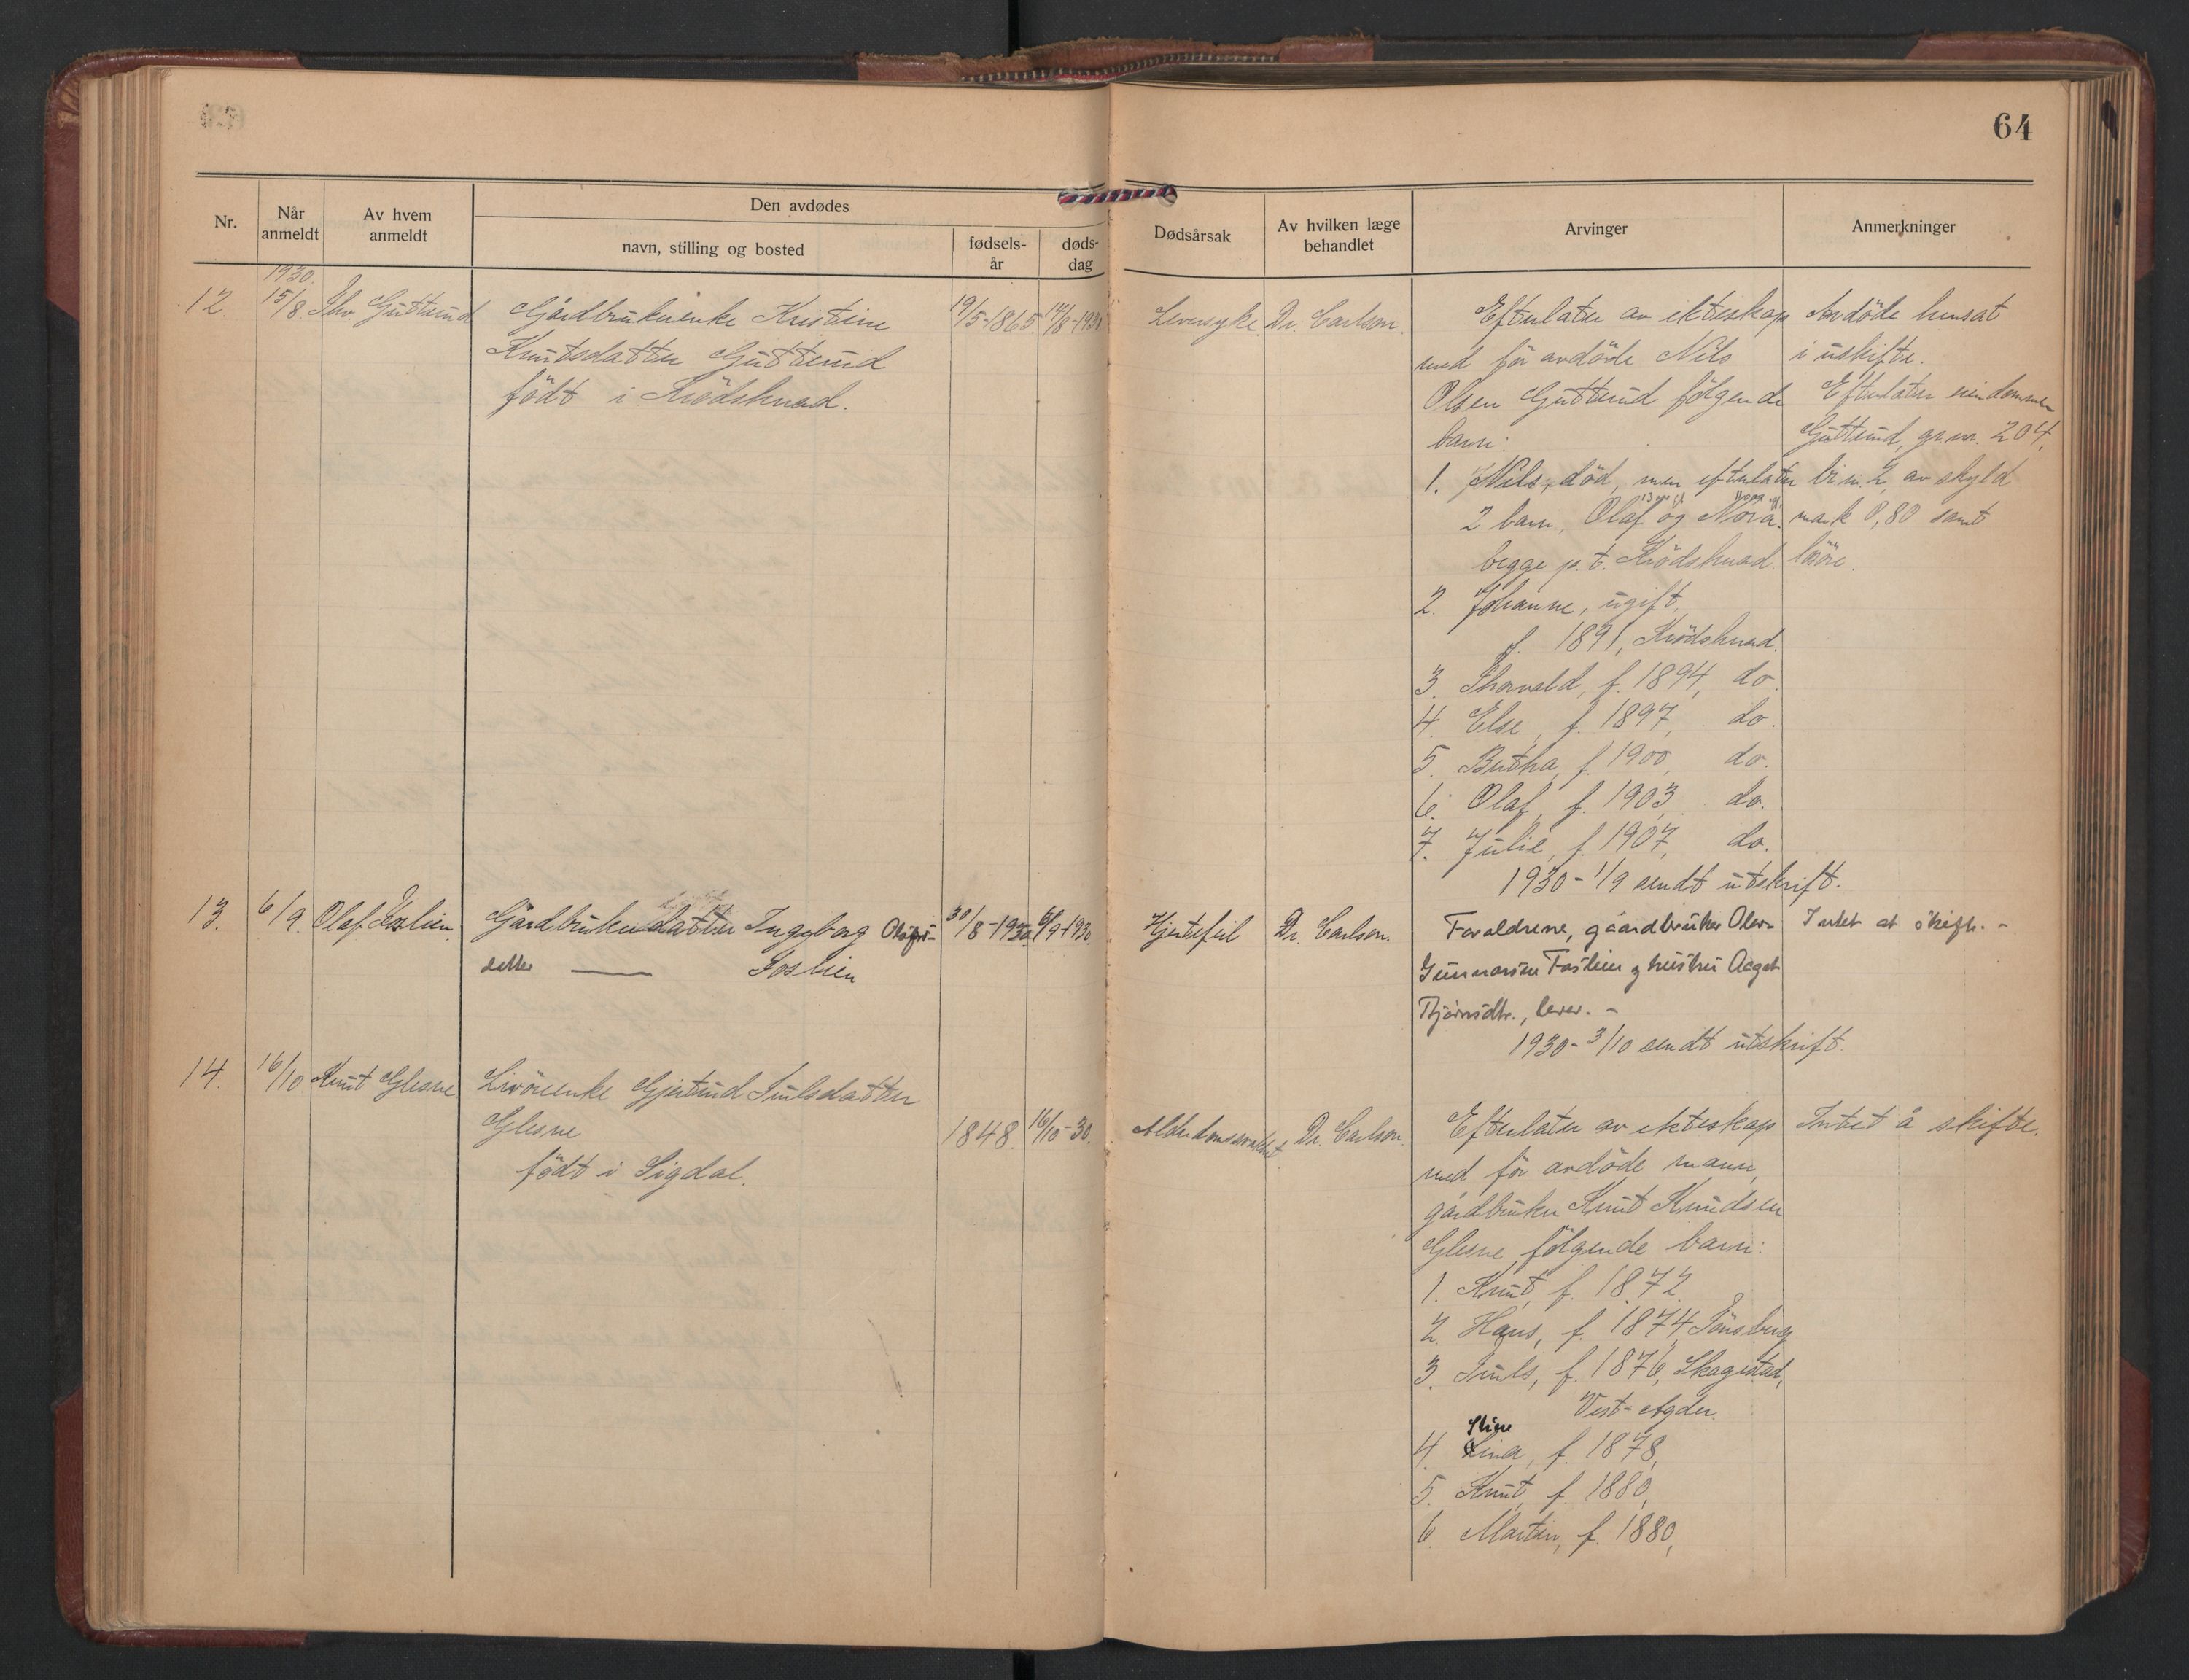 64
Nr.
Når anmeldt
Av hvem anmeldt
Den avdødes
navn, stilling og bosted
fødsels-år
døds-dag
Dødsårsak
Av hvilken læge behandlet
Arvinger
Anmerkninger
1930.
12. 15/8 Thv. Guttérud
Gårdbrukerenke Kristine
Knutsdatter Gutterud
født i Krødsherad.
19/5-1865 14/8-1930
Leversyke Dr. Carlson.
Efterlater av ekteskap
med før avdøde Nils
Olsen Gutterud følgende
barn:
1. Nils, død, men efterlater
2 barn, Olaf og Nora.
begge p.t. Krødsherad.
2. Johanne, ugift,
f. 1891, Krødsherad.
3. Thorvald, f. 1894, do.
4. Else, f. 1897, do.
5. Bertha, f. 1900, do.
6. Olaf, f. 1903, do.
7. Julie, f. 1907, do.
1930 - 1/9 sendt utskrift.
Avdøde hensat
i uskifte.
Efterlater eiendommen
Gutterud, gr.nr. 204,
br.nr. 2, av skyld
mark 0,80 samt
løsøre.
13. 6/9. Olaf Foslien.
Gårdbrukerdatter Ingeborg
datter — Foslien
30/8-1930 6/9-1930.
Hjertefeil Dr. Carlson.
Foraldrene, gaardbruker Olav
Gunnarsen Foslien og hustru Aagot
Bjørnsdtr., lever. -
1930 - 3/10 sendt utskrift.
Intet at skifte. -
14. 16/10 Knut Glesne
Livøreenke Gjertrud Trulsdatter
Glesne
født i Sigdal.
1848. 16/10-30.
Alderdomssvakhet Dr. Carlson.
Efterlater av ekteskap
med før avdøde mann,
gårdbruker Knut Knudsen
Glesne følgende barn:
1. Knut, f. 1872
2. Hans, f. 1874, Tønsberg
3. Truls, f. 1876, Skagestad,
Vest-Agder.
4. Lina, f. 1878,
5. Knut, f. 1880,
6. Martin, f. 1880,
Intet å skifte.